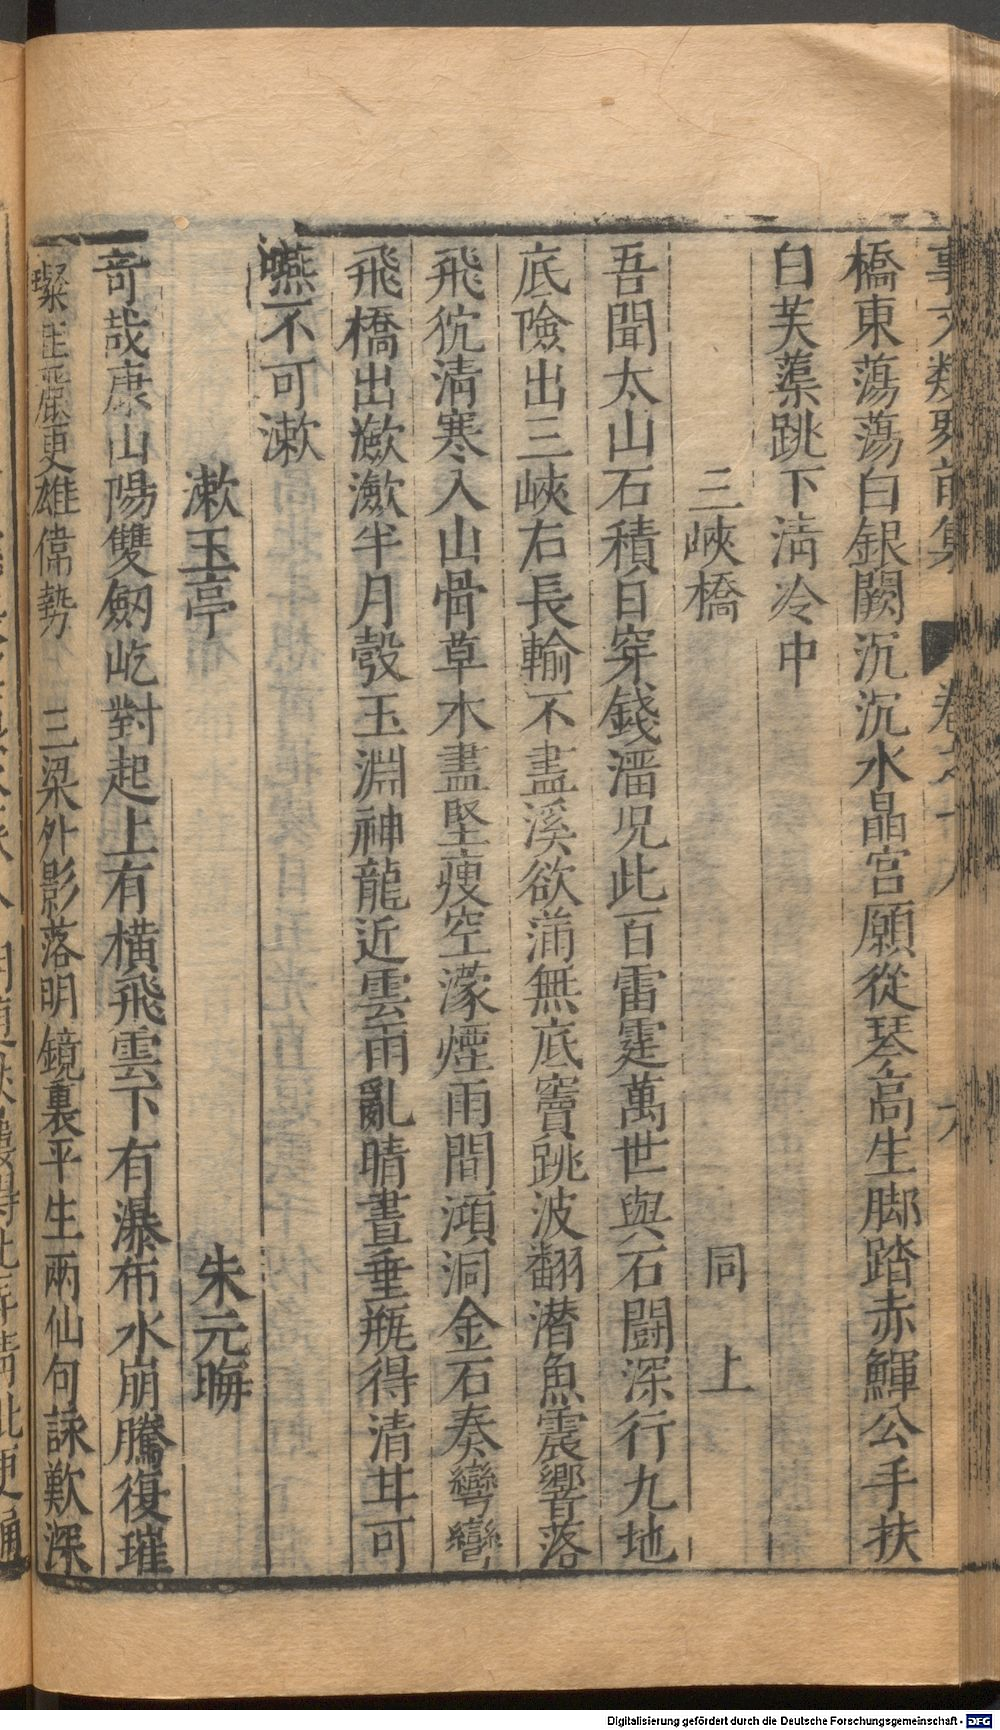 事文類聚前集 卷之十八 六
橋東蕩蕩白銀闕沉沉水晶宮願從琴高生脚踏赤鯶公手扶
白芙蕖跳下淸冷中
三峽橋 同上
吾聞太山石積日穿錢溜況此百雷霆萬世與石鬪深行九地
底險出三峽右長輸不盡溪欲滿無底竇跳波翻潛魚震響落
飛狖淸寒入山骨草木盡堅瘦空濛煙雨間澒洞金石奏彎彎
飛橋出瀲瀲半月彀玉淵神龍近雲雨亂晴晝垂瓶得清甘可
嚥不可漱
漱玉亭 朱元晦
奇哉康山陽雙劒屹對起上有橫飛雲下有瀑布水崩騰復璀
璨佳麗更雄偉勢 三梁外影落明鏡裏平生兩仙句詠歎深
Digitalisierung gefördert durch die Deutsche Forschungsgemeinschaft - DFG